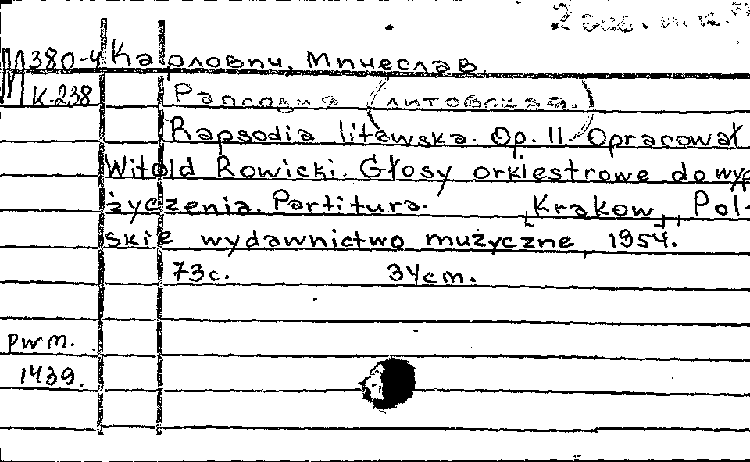 2 экз.
М 380-4 Карлович, Мичеслав.
К-238 Рапсодия (литовская.)
Rapsodia litewska. Op. 11. Opracował
Witold Rowicki. Głosy orkiestrowe do wy
życzenia. Partitura. [Krakow], Pol-
skie wydawnictwo mużyczne, 1954.
73с. 34cm.
рwм.
1439.